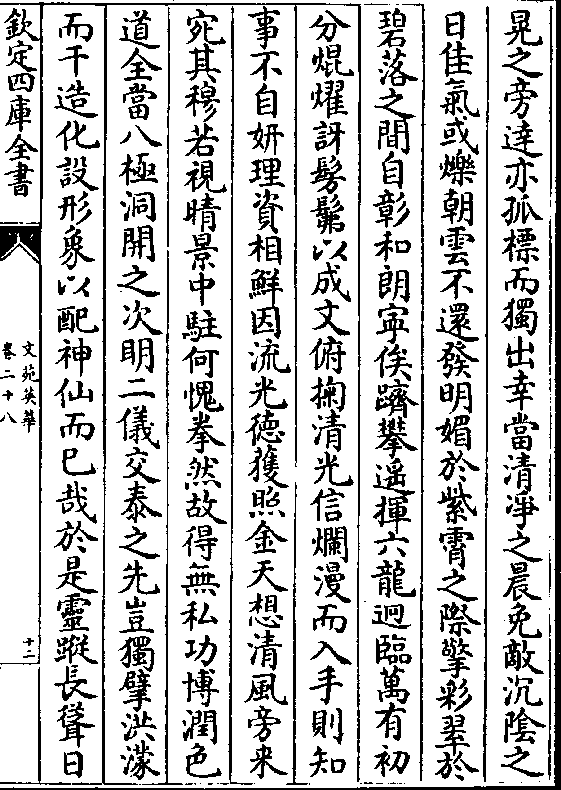 晃之旁達亦孤標而獨出幸當清淨之晨免敵沉陰之
日佳氣或爍朝雲不還發明媚於紫霄之際擎彩翠於
碧落之間自彰和朗寧俟躋攀遥揮六龍迥臨萬有初
分焜燿訝髣髴以成文俯掬清光信爛漫而入手則知
事不自妍理資相鮮因流光德獲照金天想清風旁来
宛其穆若視晴景中駐何愧拳然故得無私功博潤色
道全當八極洞開之次明二儀交泰之先豈獨擘洪濛
而干造化設形象以配神仙而已哉於是靈蹤長聳日
欽定四庫全書
文苑英華
卷二十八
十二